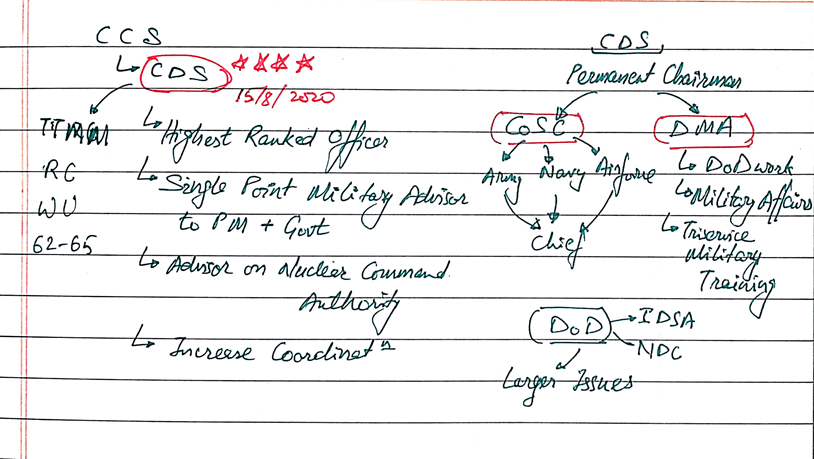 CCS
CDS
15/8/2020
Highest Ranked Officer
RC
Single Point Military Advisor
WU
to PM + Govt
62-65
Advisor on Nuclear Command
Authority
Increase Coordinatn
CDS
Permanent Chairman
CoSC
DMA
Army Navy Airforce
Chief
DoD work
Military Affairs
Triservice
Military
Training
DoD
IDSA
NDC
Larger Issues